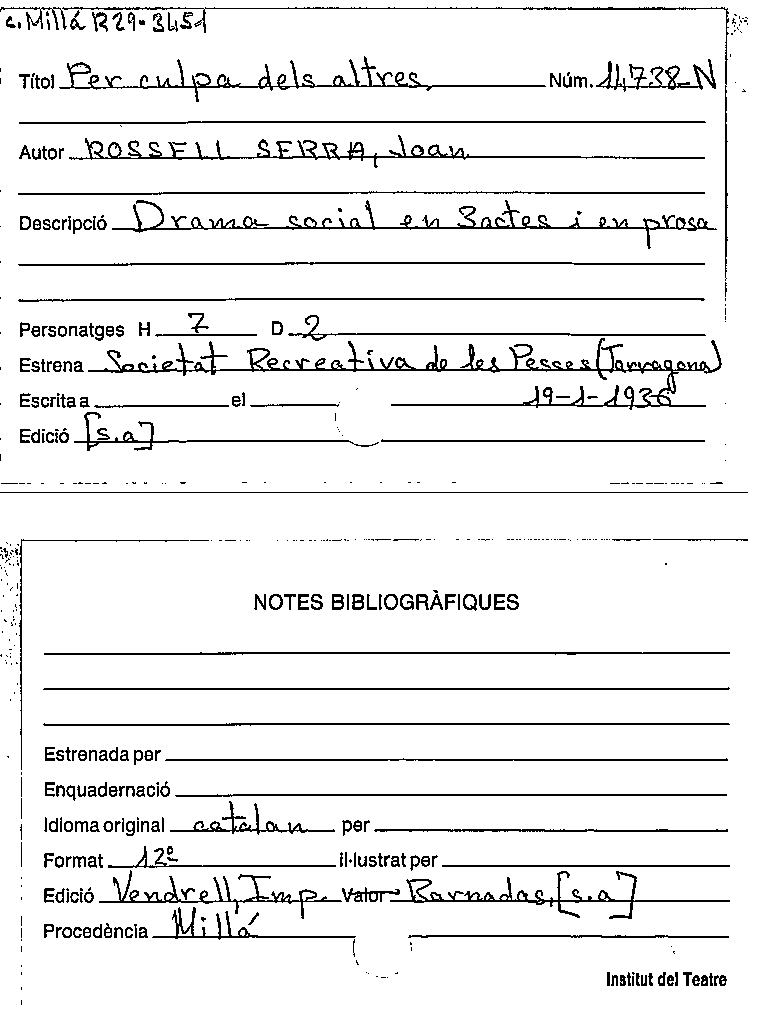 c. Millá R29-3451
Títol Per culpa dels altres. Núm. 11,738-N
Autor ROSSELL SERRA, Joan
Descripció Drama social en 3 actes i en prosa
Personatges H 7 D 2
Estrena Societat Recreativa de les Pesses (Tarragona)
Escrita a el 19-1-1936
Edició [s.a]
NOTES BIBLIOGRÀFIQUES
Estrenada per
Enquadernació
Idioma original catalan per
Format 12º il·lustrat per
Edició Vendrell, Imp. Valor Barnadas, [s.a]
Procedència Millá
Institut del Teatre